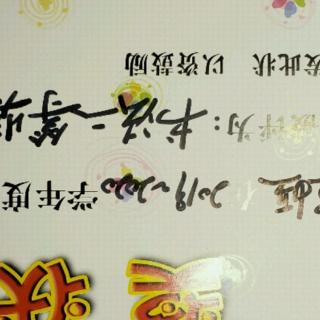 奖状
在2019~2020学年度
被评为：书法二等奖
发此状 以资鼓励